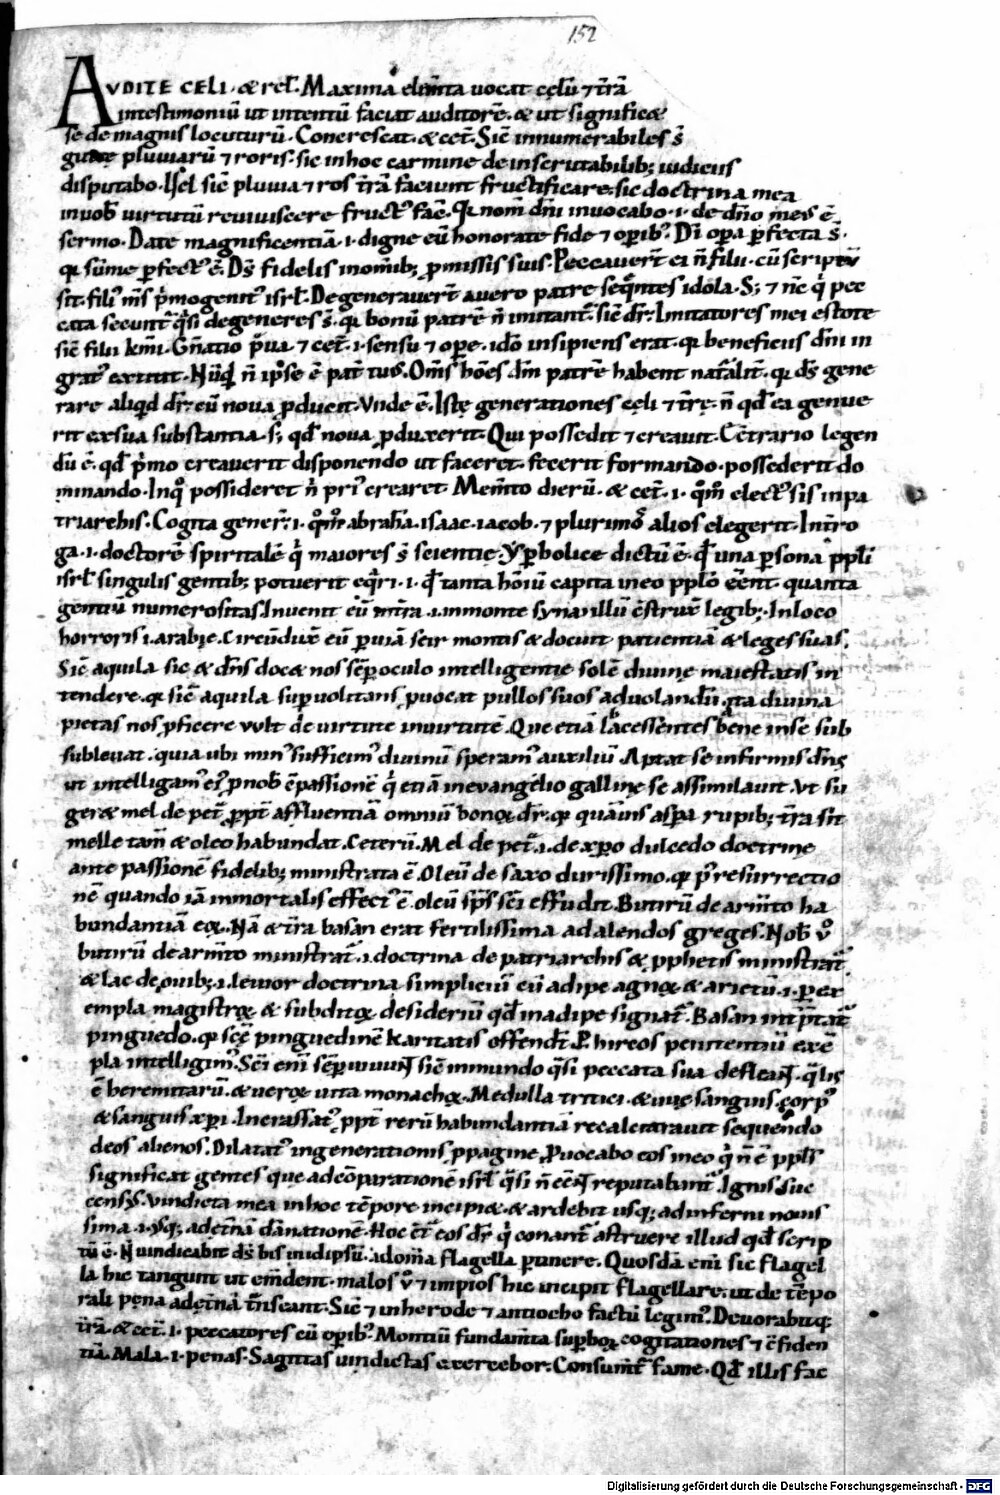 152
AUDITE CELI. & rel̄. Maxima elem̄ta uocat cęlū ⁊ t̄rā
in testimoniū ut intentū faciat auditorē. & ut significae
se de magnis locuturū. Concrescat. & cet̄. Sic̄ innumerabiles s̄
guttę pluuiarū ⁊ roris. sic in hoc carmine de inscrutabilib; iudiciis
disputabo. sic̄ pluuia ⁊ ros t̄rā faciunt fructificare. sic doctrina mea
in uob̄ uirtutū reuiuiscere fruct᷒ fac̄. Q̄ nom̄ dn̄i inuocabo .i. de dn̄o meus ē
sermo. Date magnificentiā .i. digne eū honorate fide ⁊ opib᷒. Dī opa pfecta s̄.
q̄ sūme pfect᷒ ē. Ds̄ fidelis in om̄ib; pmissis suis. Peccauer̄t ei n̄ filii. cū scriptū
sit. fili᷒ m̄s p̄mogenit᷒ isrl̄. Degenerauer̄t a uero patre seq̄ntes idola. S; ⁊ nc̄ q̄ pec
cata secunt᷒ q̄si degeneres s̄. q̄ bonū patrē n̄ imitant᷒. sic̄ dr̄. Imitatores mei estote
sic̄ filii km̄i. Gn̄atio p̄ua ⁊ cet̄ .i. sensu ⁊ ope. idō insipiens erat. q̄ beneficiis dn̄i in
grat᷒ extitit. Nūq̄d n̄ ip̄se ē pat̄ tuus. Om̄s hōes dn̄m patrē habent nat᷒alit̄. q̄ ds̄ gene
rare aliq̄d dr̄. cū noua pducit. Vnde ē. Istę generationes cęli ⁊ t̄rę. n̄ qd̄ ea genue
rit ex sua substantia. s; qd̄ noua pduxerit. Qui possedit ⁊ creauit. Cc̄trario legen
dū ē. qd̄ p̄mo creauerit disponendo ut faceret. fecerit formando. possederit do
minando. In q̊ possideret n̄ pri᷒ crearet. Mem̄to dierū. & cet̄ .i. q̊m̄ elect᷒ sis in pa
triarchis. Cogita gener̄ .i. q̊m̄ abrahā. isaac. iacob. ⁊ plurimos alios elegerit. Int̄ro
ga .i. doctorē spiritalē q̄ maiores s̄ scientię. Yperbolice dictū ē. q̄ una psona ppl̄i
isrl̄ singulis gentib; potuerit eq̄ri .i. q̄ tanta hōiū capita in eo ppl̄o eēnt. quanta
gentiū numerositas. Inuenit eū in t̄ra .i. in monte synai illū c̄struxit legib;. In loco
horroris .i. arabię. Circūdux̄ eū p uiā seir montis & docuit patientiā & leges suas.
Sic̄ aquila sic & dn̄s docæ nos sēp oculo intelligentię solē diuinę maiestatis in
tendere. q̄ sic̄ aquila sup uolitans puocat pullos suos ad uolandū. ita diuina
pietas nos pficere uult de uirtute in uirtutē. Que etiā lacessentes bene in se sub
subleuat. quia ubi min᷒ sufficim᷒ diuinū speram᷒ auxiliū. Aptat se infirmis dn̄s
ut intelligam᷒ ei᷒ p nob̄ ēpassionē q̄ etiā in euangelio gallinę se assimilauit. Vt su
geræ mel de pet̄ ppt̄ affluentiā omniū bonoꝝ dr̄. q̄ quāuis asp̄a rupib; t̄ra sit
melle tam̄ & oleo habundat. Ceterū. Mel de pet̄ .i. de xp̄o dulcedo doctrine
ante passionē fidelib; ministrata ē. Oleū de saxo durissimo. q̄ p᷒ resurrectio
nē quando iā inmortalis effect᷒ ē. oleū sp̄s sc̄i effudit. Butirū de arm̄to ha
bundantiā eoꝝ. Nā & t̄ra basan erat fertilissima ad alendos greges. Nob̄ u̾
butirū de arm̄to ministrat᷒ .i. doctrina de patriarchis & pphetis ministrat᷒.
& lac de ouib; .i. leuior doctrina simpliciū cū adipe agnoꝝ & arietū .i. p ex
empla magistroꝝ & subditoꝝ desideriū qd̄ in adipe signat᷒. Basan int̄ptat᷒
pinguedo. q̄ sc̄ę pinguedinē karitatis offendit. P hircos penitentiū exē
pla intelligim᷒. Sc̄i enī sēp uiuunt sic̄ in mundo q̄si peccata sua defleant. q̄lis
ē heremitarū. & ueroꝝ uita monachoꝝ. Medulla tritici. & uuę sanguis. corp᷒
& sanguis xp̄i. Incrassat᷒ ppt̄ rerū habundantiā recalcitrauit sequendo
deos alienos. Dilatat᷒ in generationis ppagine. Puocabo eos in eo q̄ n̄ ē ppl̄s
significat gentes que ad c̄parationē isrl̄ q̄si n̄ eēnt reputabant᷒. Ignis suc
census. Vindicta mea in hoc tēpore incipiæ. & ardebit usq; ad inferni nouis
sima .i. usq; ad et̄nā dānationē. Hoc c̄t̄ eos dr̄ q̄ conant᷒ astruere illud qd̄ scrip
tū ē. N̄ uindicabit ds̄ bis in idipsū. ad om̄a flagella ptinere. Quosdā enī sic flagel
la hic tangunt ut em̄dent. malos u̾ ⁊ impios hic incipit flagellare. ut de tēpo
rali pena ad et̄nā t̄nseant. Sic̄ ⁊ in herode ⁊ antiocho factū legim᷒. Deuorabitq;
t̄rā. & cet̄ .i. peccatores cū opib᷒. Montiū fundam̄ta supboꝝ cogitationes ⁊ c̄fiden
tiā. Mala .i. penas. Sagittas uindictas exercebor. Consument᷒ fame. Qd̄ illis fac
Digitalisierung gefördert durch die Deutsche Forschungsgemeinschaft - DFG